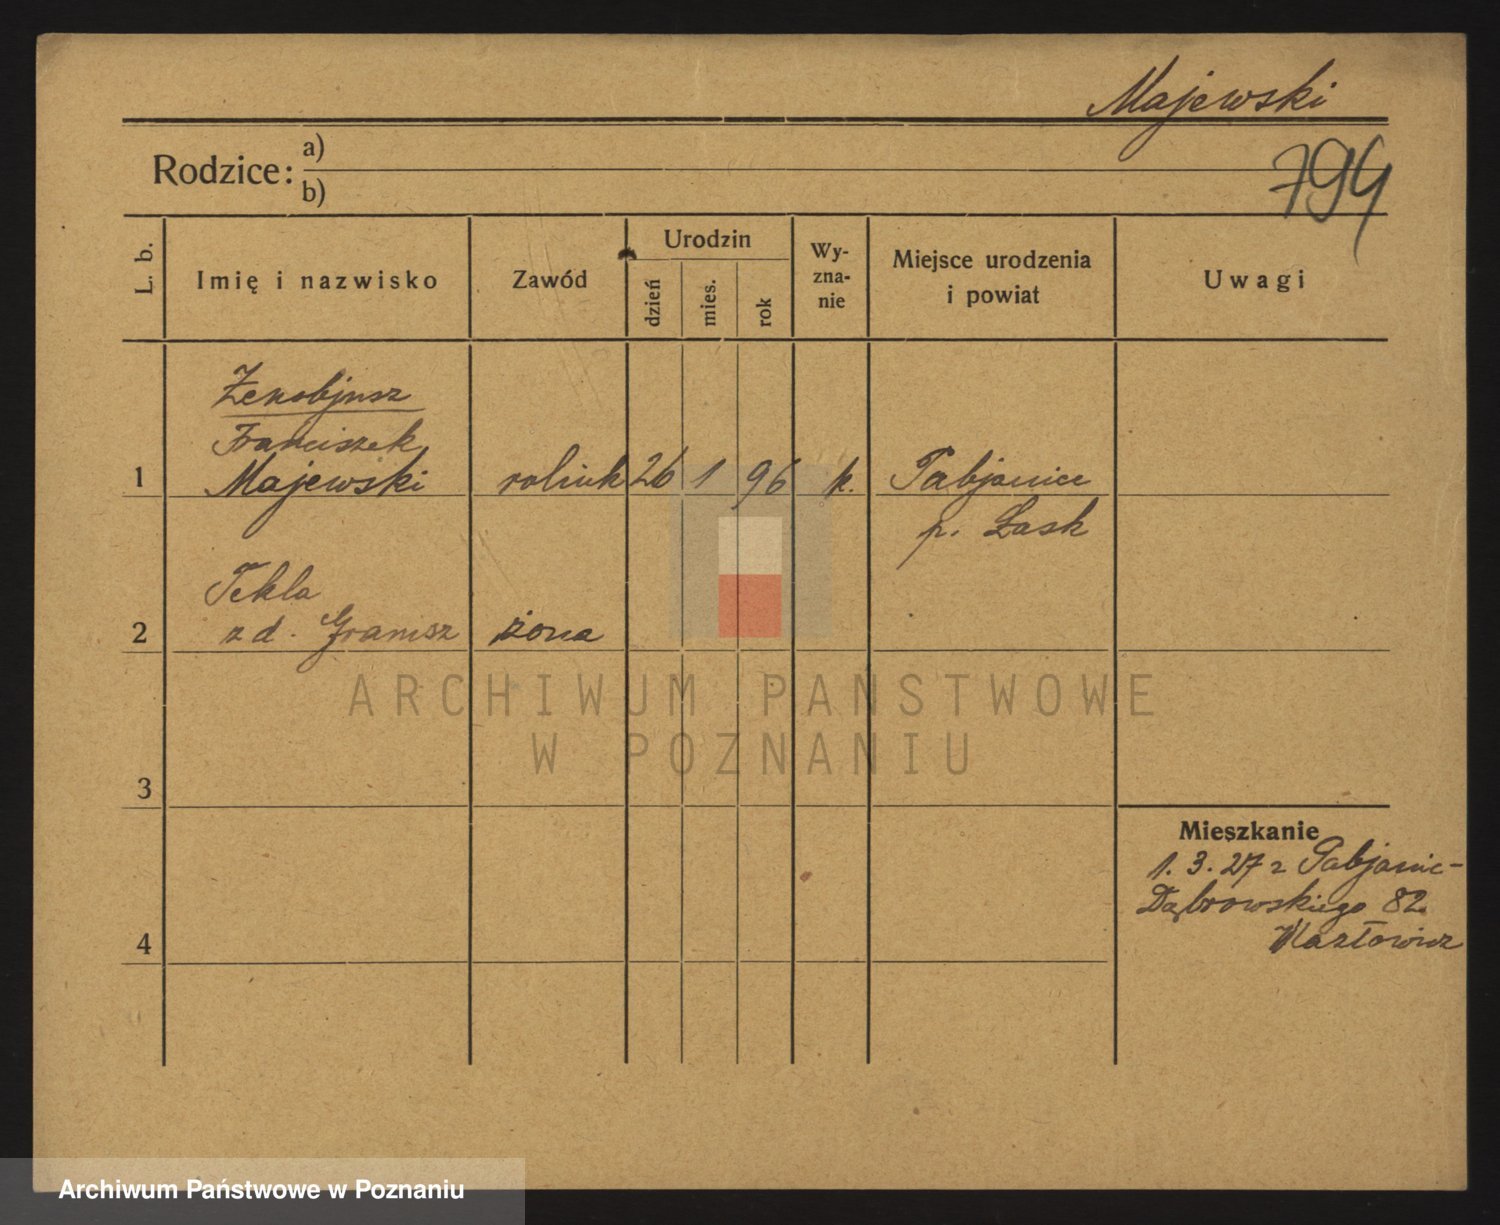 Majewski
794
Rodzice: a)
b)
L. b.
Imię i nazwisko
Zawód
Urodzin
dzień
mies.
rok
Wy-
zna-
nie
Miejsce urodzenia
i powiat
Uwagi
Zenobjusz
Franciszek
1 Majewski rolnik 26 1 96 k. Pabjanice
p. Łask
Tekla
2 z d. żona
3
Mieszkanie
1. 3. 27 z Pabjanic-
Dąbrowskiego 82.
4
ARCHIWUM PAŃSTWOWE
W POZNANIU
Archiwum Państwowe w Poznaniu